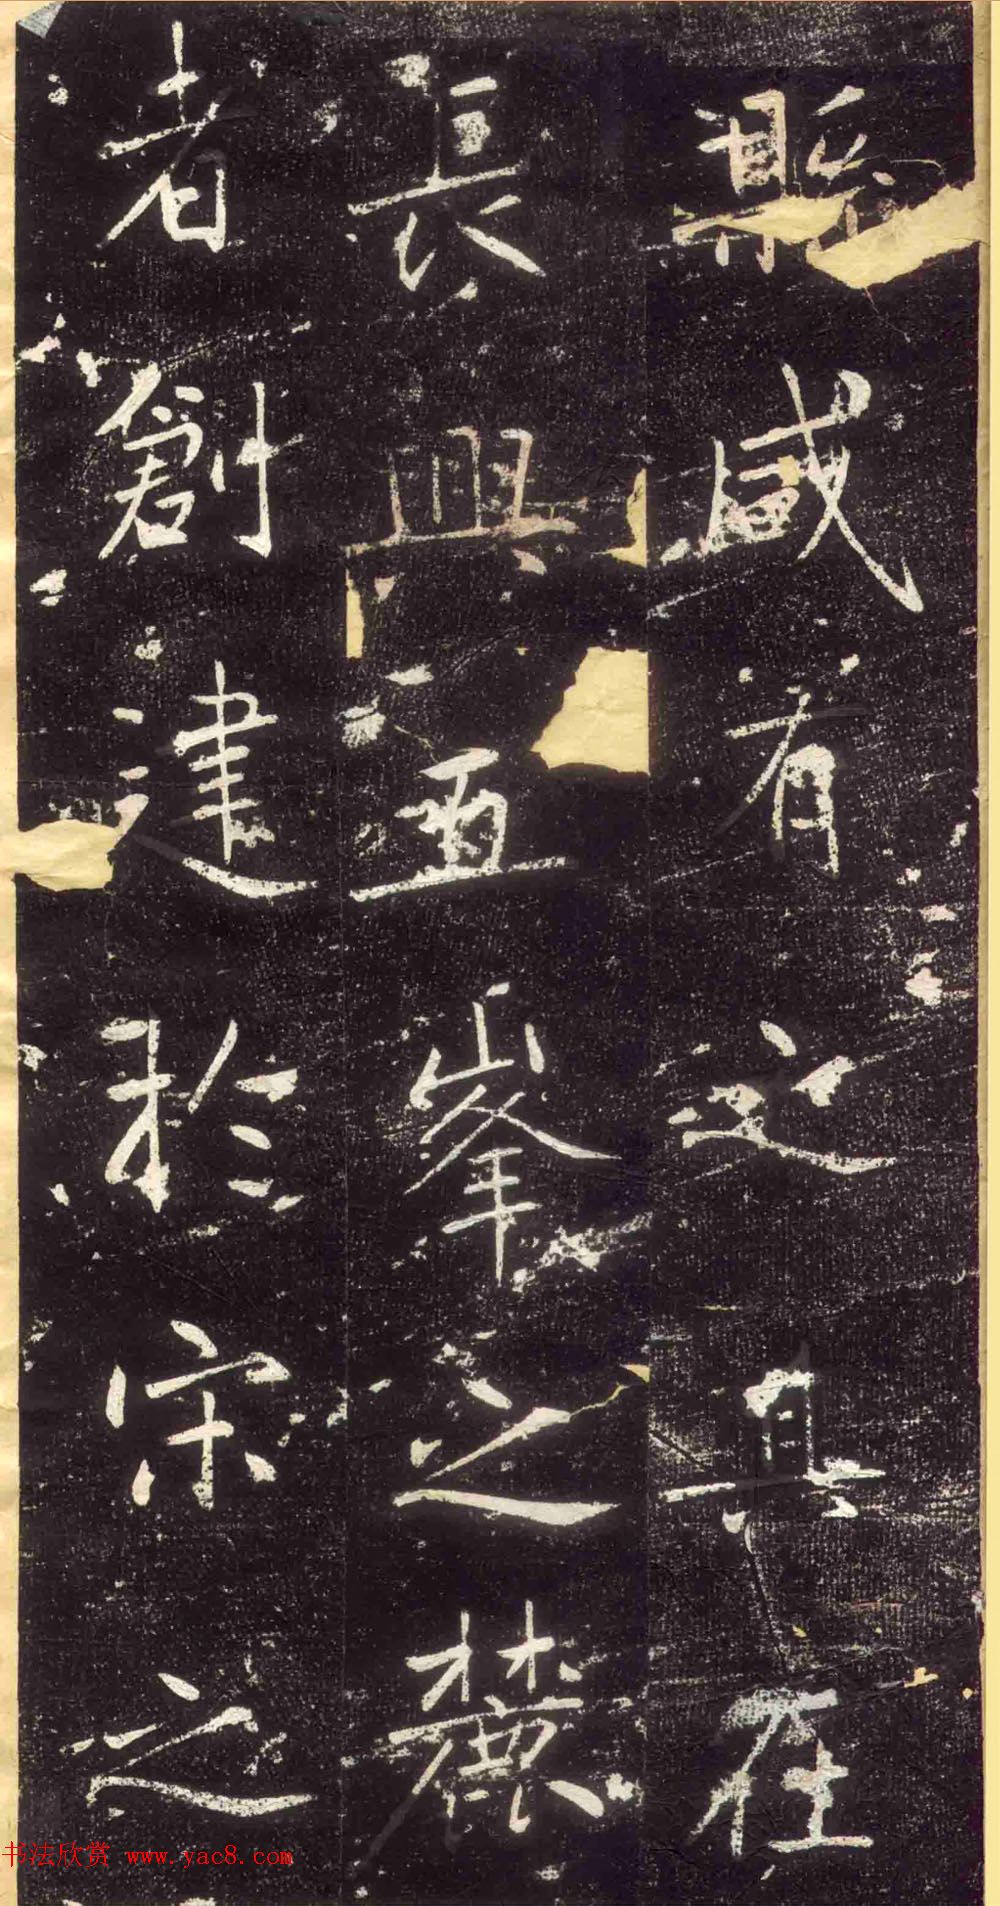 縣咸有文其在
長興五峯之麓
者創建於宋之
书法欣赏 www.yac8.com